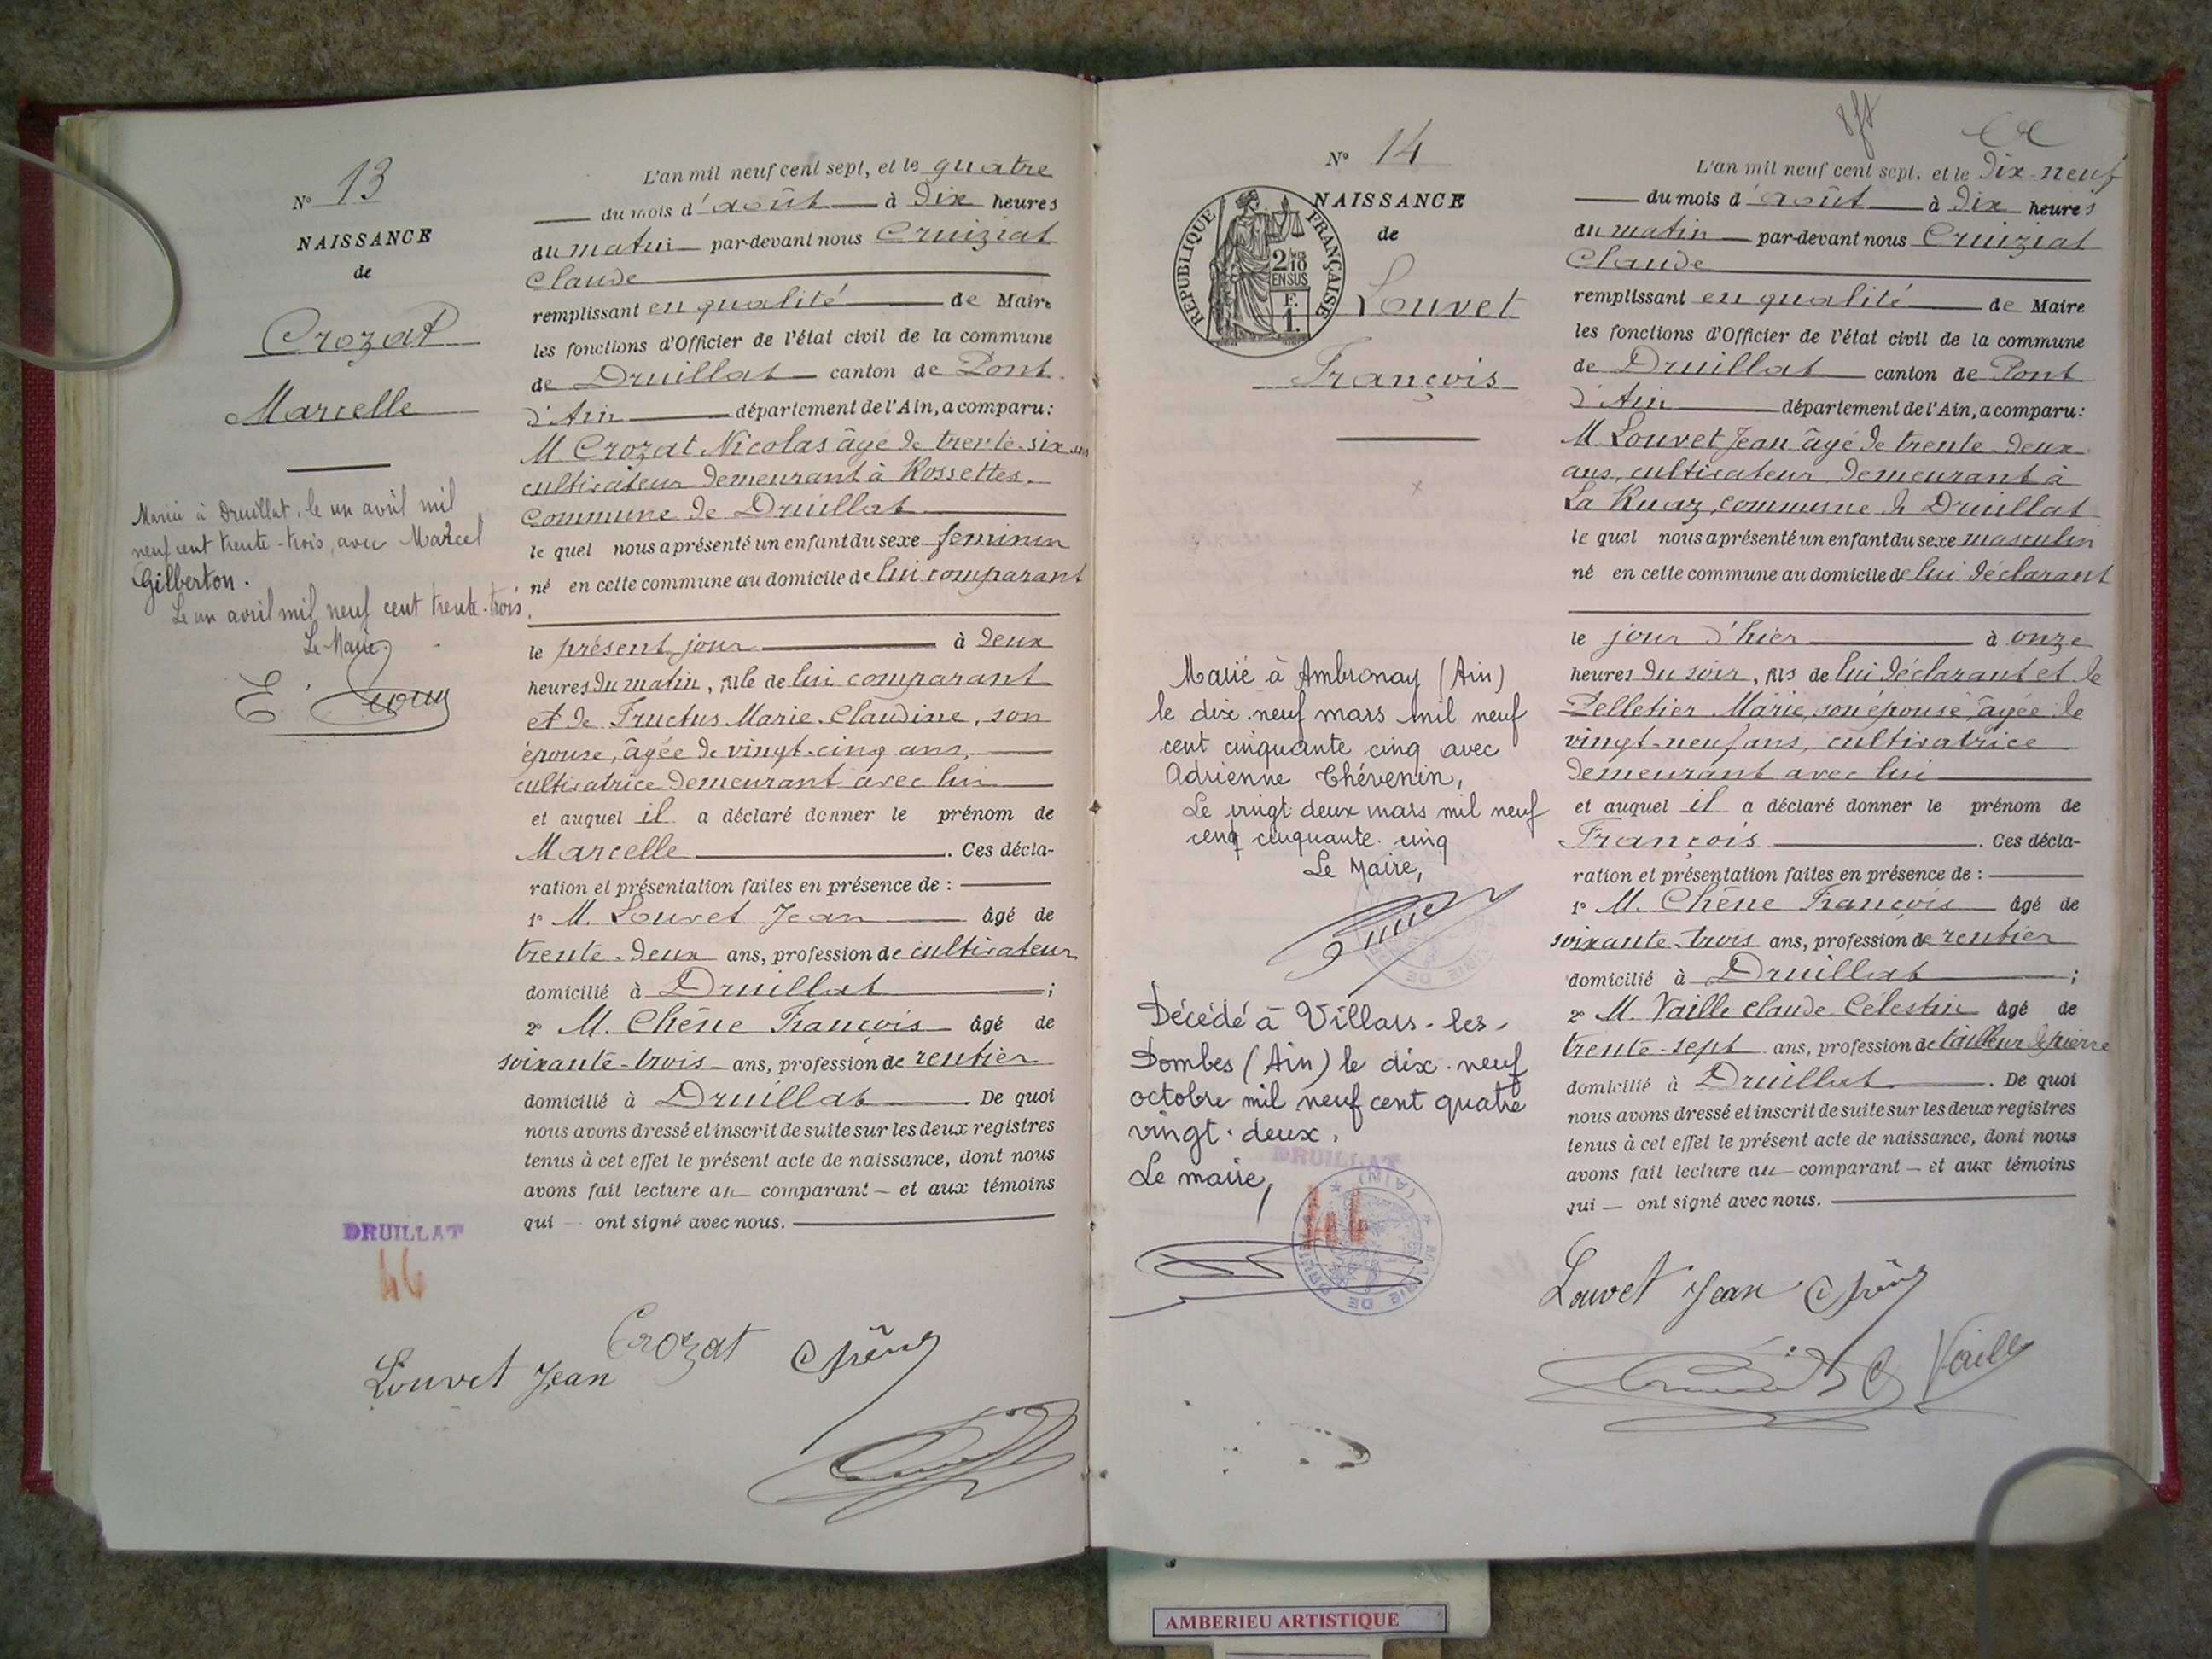 N° 13
NAISSANCE
de
Crozat
Marcelle
Mariée à Druillat, le un avril mil
neuf cent trente-trois, avec Marcel
Gilberton.
Le un avril mil neuf cent trente-trois.
Le Maire
DRUILLAT
L'an mil neuf cent sept, et le quatre
du mois d'août à Dix heures
du matin par-devant nous Cruiziat
Claude
remplissant en qualité de Maire
les fonctions d'Officier de l'état civil de la commune
de Druillat canton de Pont
d'Ain département de l'Ain, a comparu:
M Crozat Nicolas âgé de trente-six ans
cultivateur demeurant à Rossettes,
Commune de Druillat
le quel nous a présenté un enfant du sexe féminin
né en cette commune au domicile de lui comparant
le présent jour à deux
heures du matin, fille de lui comparant
et de Fructus Marie Claudine, son
épouse, âgée de vingt-cinq ans,
cultivatrice demeurant avec lui
et auquel il a déclaré donner le prénom de
Marcelle. Ces décla-
ration et présentation faites en présence de :
1° M. Louvet Jean âgé de
trente-deux ans, profession de cultivateur
domicilié à Druillat ;
2° M. Chêne François âgé de
soixante-trois ans, profession de rentier
domicilié à Druillat De quoi
nous avons dressé et inscrit de suite sur les deux registres
tenus à cet effet le présent acte de naissance, dont nous
avons fait lecture au comparant et aux témoins
qui ont signé avec nous.
Crozat
Louvet Jean Chêne
N° 14
NAISSANCE
de
Louvet
François
REPUBLIQUE FRANÇAISE
2/10
EN SUS
F.
1.
Marié à Ambronay (Ain)
le dix neuf mars mil neuf
cent cinquante cinq avec
Adrienne Thévenin,
Le vingt-deux mars mil neuf
cenq cinquante cinq
Le Maire,
Décédé à Villars-les-
Dombes (Ain) le dix-neuf
octobre mil neuf cent quatre
vingt-deux,
Le maire,
DRUILLAT
MAIRIE DE DRUILLAT (AIN)
L'an mil neuf cent sept, et le Dix-neuf
du mois d'août à Dix heures
du matin par-devant nous Cruiziat
Claude
remplissant en qualité de Maire
les fonctions d'Officier de l'état civil de la commune
de Druillat canton de Pont
d'Ain département de l'Ain, a comparu:
M Louvet Jean âgé de trente-deux
ans, cultivateur demeurant à
La Ruaz, commune de Druillat
le quel nous a présenté un enfant du sexe masculin
né en cette commune au domicile de lui déclarant
le jour d'hier à onze
heures du soir, fils de lui déclarant et de
Pelletier Marie, son épouse, âgée de
vingt-neuf ans, cultivatrice
demeurant avec lui
et auquel il a déclaré donner le prénom de
François. Ces décla-
ration et présentation faites en présence de :
1° M. Chêne François âgé de
soixante-trois ans, profession de rentier
domicilié à Druillat ;
2° M. Vaille Claude Célestin âgé de
trente-sept ans, profession de tailleur de pierre
domicilié à Druillat. De quoi
nous avons dressé et inscrit de suite sur les deux registres
tenus à cet effet le présent acte de naissance, dont nous
avons fait lecture au comparant et aux témoins
qui ont signé avec nous.
Louvet Jean Chêne
Vaille
AMBERIEU ARTISTIQUE